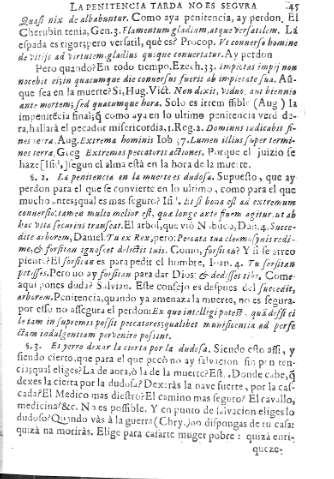 LA PENITENCIA TARDA NO ES SEGVRA 45
Quasi nix de albabuntur. Como aya penitencia, ay perdon. El
Cherubin tenia, Gen. 3. Flamentum gladium, atque versatilem. La
espada es rigor; pero versatil, què es? Procop. Vt converso homine
de vitijs ad virtutem, gladius quoque converteretur. Ay perdon
Pero quando? En todo tiempo. Ezech. 33. impietas impij non
nocebit ei, in quacumque die conversus fuerit ab impietate sua. Aũ-
que sea en la muerte? Si, Hug. Vict. Non dixit, viduo, aut biennio
ante mortem; sed quacumque hora. Solo es irrem ssible (Aug.) la
impenitēcia final; q̃ como aya en lo ultimo penitencia verd de-
ra, hallarà el pecador misericordia, 1. Reg. 2. Dominus iudicabit fi-
nes terra. Aug. Extrema hominis Iob 37. Lumen illius super termi-
nes terra. Greg. Extremos pecatoris actiones. Porque el juizio se
haze (Isid.) segun el alma està en la hora de la muerte.
§. 2. La penitencia en la muerte es dudosa. Supuesto, que ay
perdon para el que se convierte en lo ultimo, como para el que
mucho antes; qual es mas seguro? Isid. Et si bona est ad extremum
conversio; tamen multo melior est, qua longe ante finem agitur, ut ab
hac vita securius transeat. El arbol, que viò Nabuco, Dan. 4. Succe-
dite arborem, Daniel. Tu es Rex, pero: Peccata tua eleemosynis redi-
me, & forsitan ignoscet delictis tuis. Como, forsitan? Y si se arre-
piente? El forsitan es para pedir el hombre, Ioan. 4. Tu forsitan
petisses. Pero no ay forsitan para dar Dios: & dedisset tibi. Come
aqui pones duda? Salvian. Este consejo es despues del succidite,
arborem. Penitencia, quando ya amenaza la muerte, no es segura.
por esso no assegura el perdon: Ex que intelligi potest. quã diffi ci
le tam in supremis possit pecatores; qualibet munificentia ad perfe
ctam indulgentiam pervenire possint.
§. 3. Es yerro dexar la cierta por la dudosa. Siendo esto assi, y
siendo cierto, que para el que pecò no ay salvacion sin pen ten-
cia; qual eliges? La de aora, ò la de la muerte? Est. Donde cabe, q̃
dexes la cierta por la dudosa? Dexaràs la nave fuerte, por la cas-
cada? El Medico mas diestro? El camino mas seguro? El cavallo,
medicina? &c. No es possible. Y en punto de salvacion eliges lo
dudoso? Quando vàs à la guerra (Chry.) no dispongas de tu casa:
quizà no moriràs. Elige para casarte muger pobre: quizà enri-
queze-